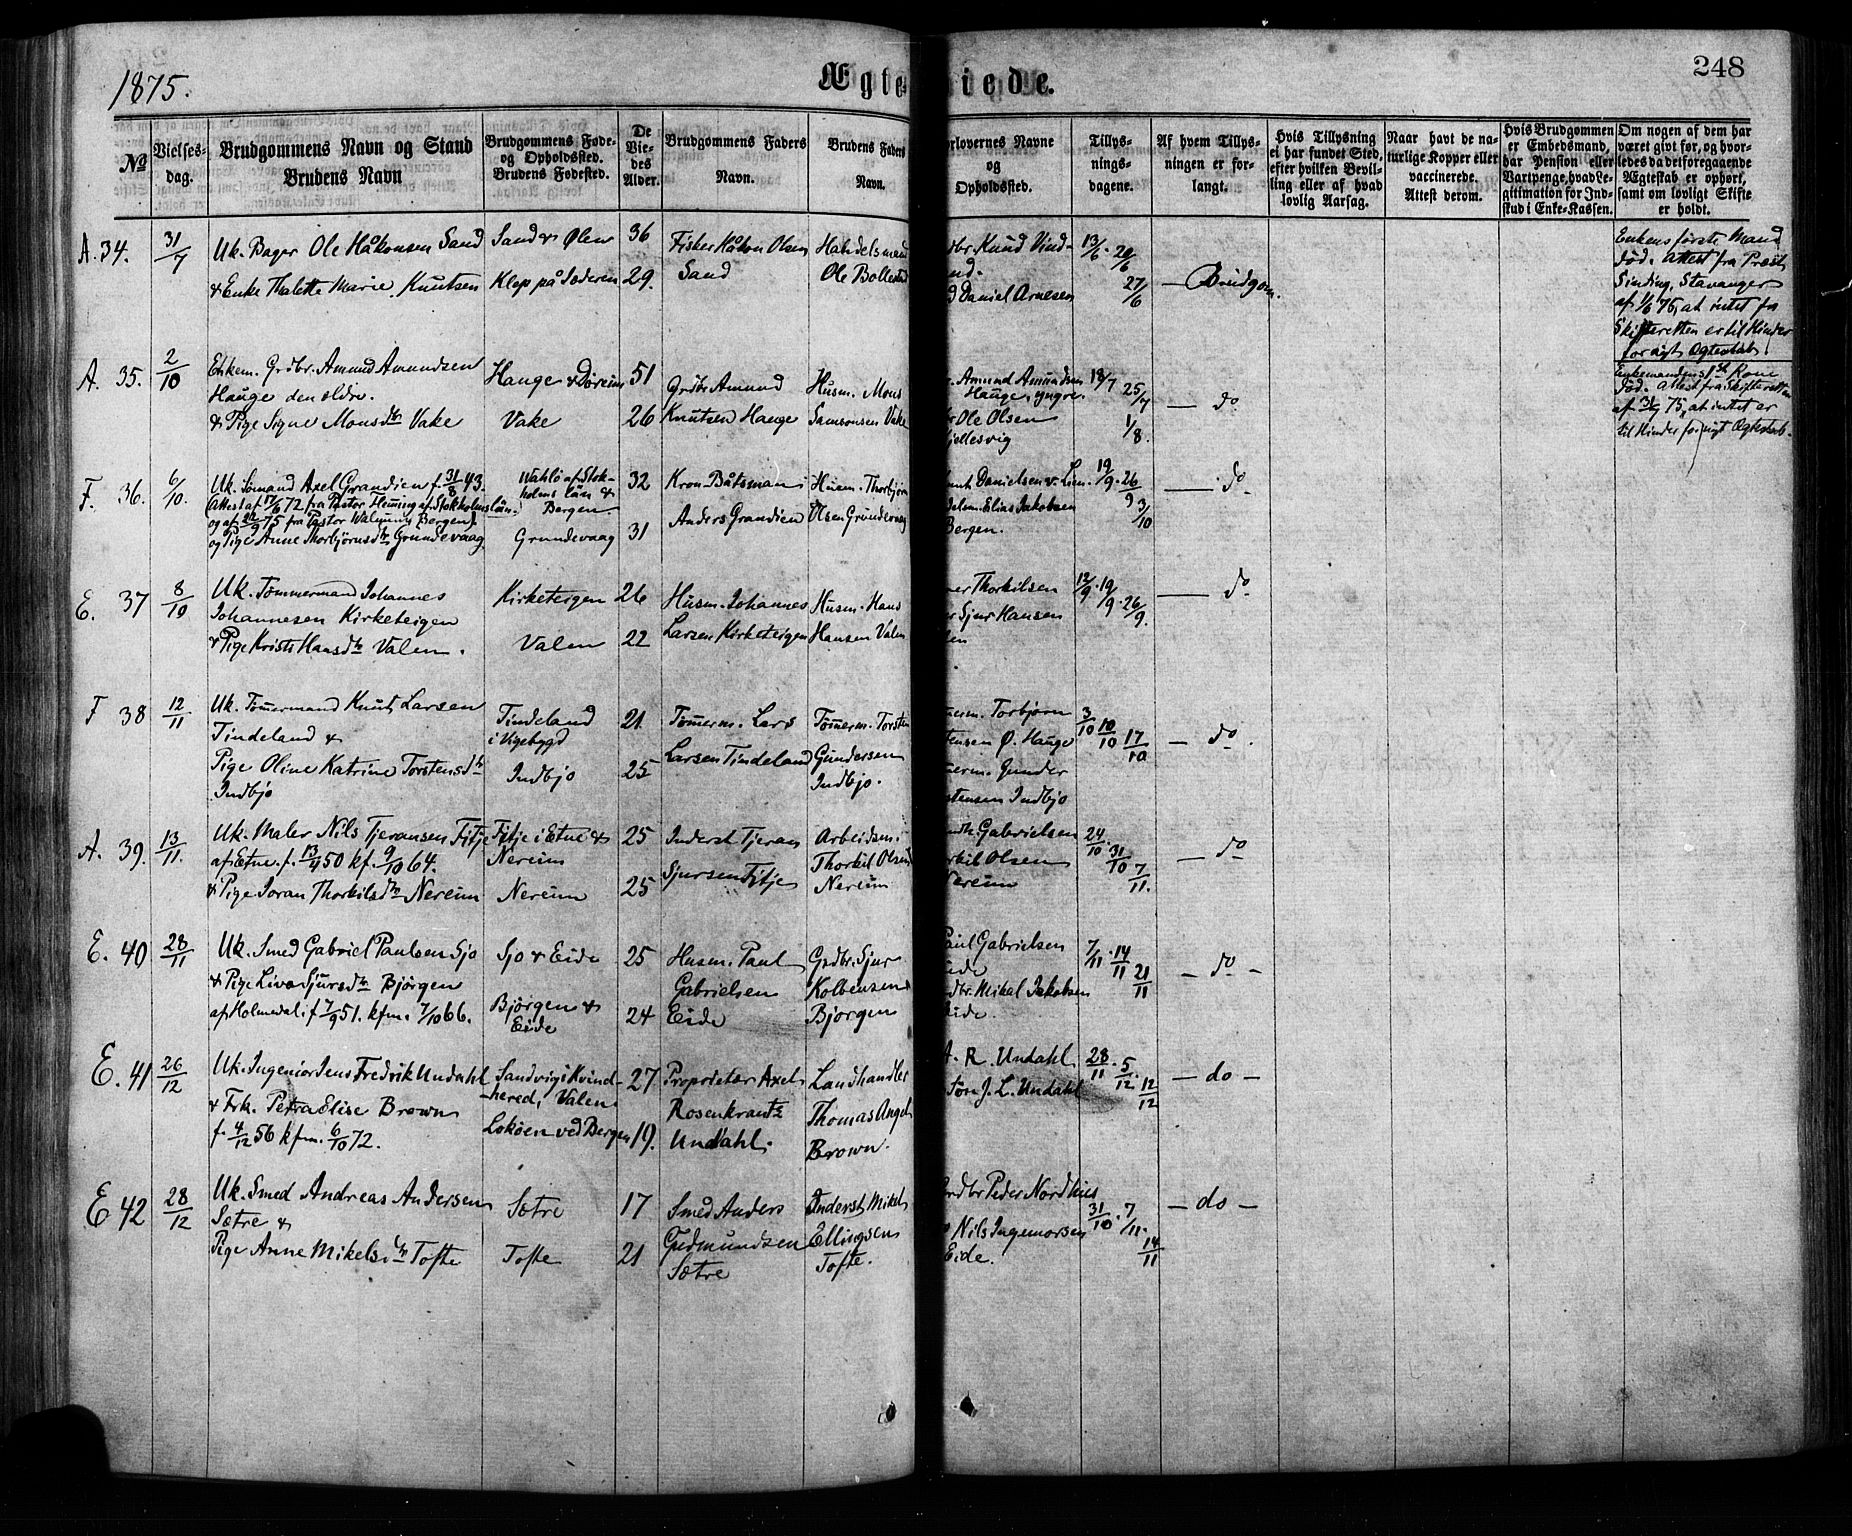 1875.
Ægte
iede.
248
№
Vielses-
dag.
Brudgommens Navn og Stand
Brudens Navn
Brudgommens Føde-
og Opholdssted.
Brudens Fødested.
De
Vie-
des
Alder.
Brudgommens Faders
Navn.
Brudens Faders
Navn.
rlovernes Navne
og
Opholdssted.
Tillys-
nings-
dagene.
Af hvem Tillys-
ningen er for-
langt.
Hvis Tillysning
ei har fundet Sted,
efter hvilken Bevil-
ling eller af hvad
lovlig Aarsag.
Naar havt de na-
turlige Kopper eller
vaccinerede.
Attest derom.
Hvis Brudgommen
er Embedsmand,
har Pension eller
Vartpenge, hvad Le-
gitimation for Ind-
skud i Enke-Kassen.
Om nogen af dem har
været givt før, og hvor-
ledes da det foregaaende
Ægteskab er ophørt,
samt om lovligt Skifte
er holdt.
A. 34. 31/7
Uk. Bager Ole Håkonsen Sand
& Enke Thalette Marie Knutsen
Sand & Ølen
Klep på Jæderen
36
29.
Fisker Håkon Olsen
Sand
Handelsmand
Ole Bollestad
dbr Knud Vind-
nd.
d Daniel Arnesen
13/6. 20/6
27/6
— Brudgom.
Enkens første Mand
død. Attest fra Præst
Sinding, Stavanger
af 1/6 75, at intet fra
Skifteretten er til Hinder
for nyt Ægteskab.
A. 35. 2/10
Enkem. Grdbr. Amund Amundsen
Hauge den ældre.
& Pige Signe Monsdtr Vake
Hauge & Døreim
Vake
51
26
Grdbr Amund
Knutsen Hauge
Husm. Mons
Samsonsen Vake
r. Amund Amundsen
Hauge, yngre.
r Ole Olsen
jellesvig
18/7 25/7
1/8.
— do
Enkemandens 1ste Kone
død. Attest fra Skifteretten
af 31/7 75, at intet er
til Hinder for nyt Ægteskab.
F. 36. 6/10.
Uk. Sømand Axel Grandien f. 31/8 43.
(Attest af 17/6 72 fra Pastor Fleming af Stokholms län.
og af 22/9 75 fra Pastor Walnum, Bergen)
og Pige Anne Thorbjørnsdtr Grundevaag
Wahlö af Stok-
holms län &
Bergen.
Grundevaag
32
31
Kron-Båtsman
Anders Grandien
Husm. Thorbjørn
Olsen Grundevaag
Danielsen v. Lien.
delsm. Elias Jakobsen
Bergen.
19/9. 26/9
3/10
— do
E. 37 8/10
Uk. Tømmermand Johannes
Johannesen Kirketeigen
& Pige Kristi Hansdtr Valen.
Kirketeigen
Valen
26
22
Husm. Johannes
Larsen Kirketeigen
Husm. Hans
Hansen Valen
ner Thorkilsen
er Sjur Hansen
len
12/9. 19/9. 26/9.
— do
F 38 12/11
Uk. Tømermand Knut Larsen
Tindeland &
Pige Oline Katrine Torstensdtr
Indbjo
Tindeland
i Vigebygd
Indbjo
21
25
Tømerm. Lars
Larsen Tindeland
Tømerm. Torsten
Gundersen
Indbjo.
merm. Torbjørn
tensen Ø. Hauge
merm. Gunder
stensen Indbjo
3/10 10/10 17/10
— do.
A. 39. 13/11.
Uk. Maler Nils Tjeransen Fitje
af Etne. f. 13/4 50 kf. 9/10 64.
& Pige Joran Thorkilsdtr Nereim
Fitje i Etne &
Nereim
Nereim
25
25
Inderst Tjeran
Sjursen Fitje
Arbeidsm.
Thorkil Olsen
Nereim
Gabrielsen
rkil Olsen
Nereim
24/10. 31/10 7/11.
— do
E. 40 28/11
Uk. Smed Gabriel Paulsen Sjo
& Pige Liva Sjursdtr Bjørgen
af Holmedal. f 7/9 51. kfm. 7/10 66.
Sjo & Eide
Bjørgen &
Eide
25
24
Husm. Paul
Gabrielsen
Eide
Grdbr. Sjur
Kolbensen
Bjørgen
Paul Gabrielsen
Eide
dbr. Mikal Jakobsen
Eide.
7/11. 14/11 21/11
— do —
E. 41 26/12
Uk. Ingeniør Jens Fredvik Undahl
& Frk. Petra Elise Brown
f. 4/12 56 kfm. 6/10 72.
Sandvig i Kvind-
hered, Valen
Lokøen ved Bergen
27
19.
Proprietær Axel
Rosenkrantz
Undahl.
Landhandler
Thomas Angel
Brown.
A. R. Undahl
J. L. Undahl
28/11. 5/12. 12/12
— do —
E 42 28/12
Uk. Smed Andreas Andersen
Sætre &
Pige Anne Mikelsdtr Tofte
Sætre
Tofte
17
21
Smed Anders
Gudmundsen
Sætre
Inderst Mikel
Ellingsen
Tofte.
Grdbr Peder Nordhus
Nils Ingemorsen
Eide.
31/10. 7/11.
14/11
— do —